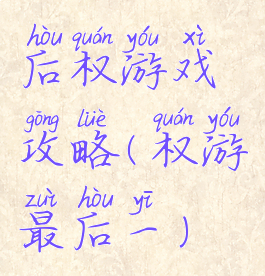 hòu quán yóu xì
后权游戏
gōng lüè quán yóu
攻略(权游
zuì hòu yī
最后一)